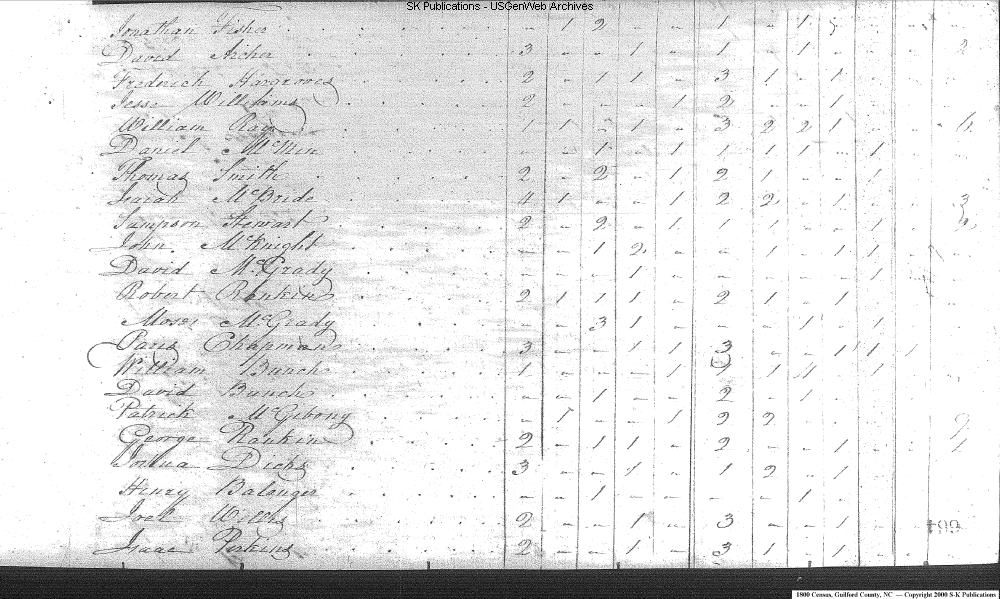 SK Publications - USGenWeb Archives
Jonathan Fisher - 1 2 - - 1 - 1
David Archer 3 - - 1 - 1 - 1 - - - 2
Fredrick Hargroves 2 - 1 1 - 3 1 - 1
Jesse Williams 2 - - - 1 2 - - 1
William Ray 1 1 - 1 - 3 2 2 1 - - 6
Daniel McMin - - 1 - 1 1 1 1 - 1
Thomas Smith 2 - 2 - 1 2 1 - - 1
Isaiah McBride 4 1 - - 1 2 2 - 1 - - 3
Sampson Stewart 2 - 2 - 1 1 1 - - 1
John McKnight - - 1 2 - - - 1 - 1
David McGrady - - - 1 - - - - - 1
Robert Rankin 2 1 1 1 - 2 1 - 1
Moses McGrady - - 3 1 - - - 1 - 1
Paris Chapman 3 - - 1 1 3 - - 1 1 1
William Bunch 1 - - - 1 1 1 - 1
David Bunch - - 1 - - 2 - 1
Patrick McGibony - 1 - - 1 2 2 - - - - 2
George Rankin 2 - 1 1 - 2 - - 1 - - 1
Joshua Dicks 3 - - 1 - 1 2 - 1
Henry Balonger - - 1 - - - - 1
Joel Willis 2 - - 1 - 3 - - 1
Isaac Perkins 2 - - 1 - 3 1 - 1
1800 Census, Guilford County, NC — Copyright 2000 S-K Publications